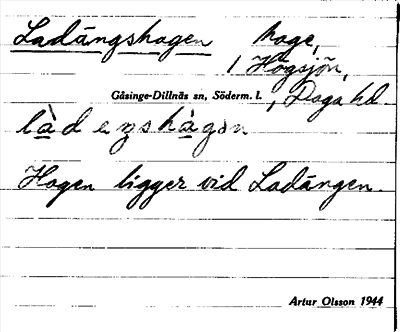 Ladängshagen hage,
/ Högsjön,
Gåsinge-Dillnäs sn, Söderm. l. , Daga hd.
làdeŋshàgən
Hagen ligger vid Ladängen.
Artur Olsson 1944